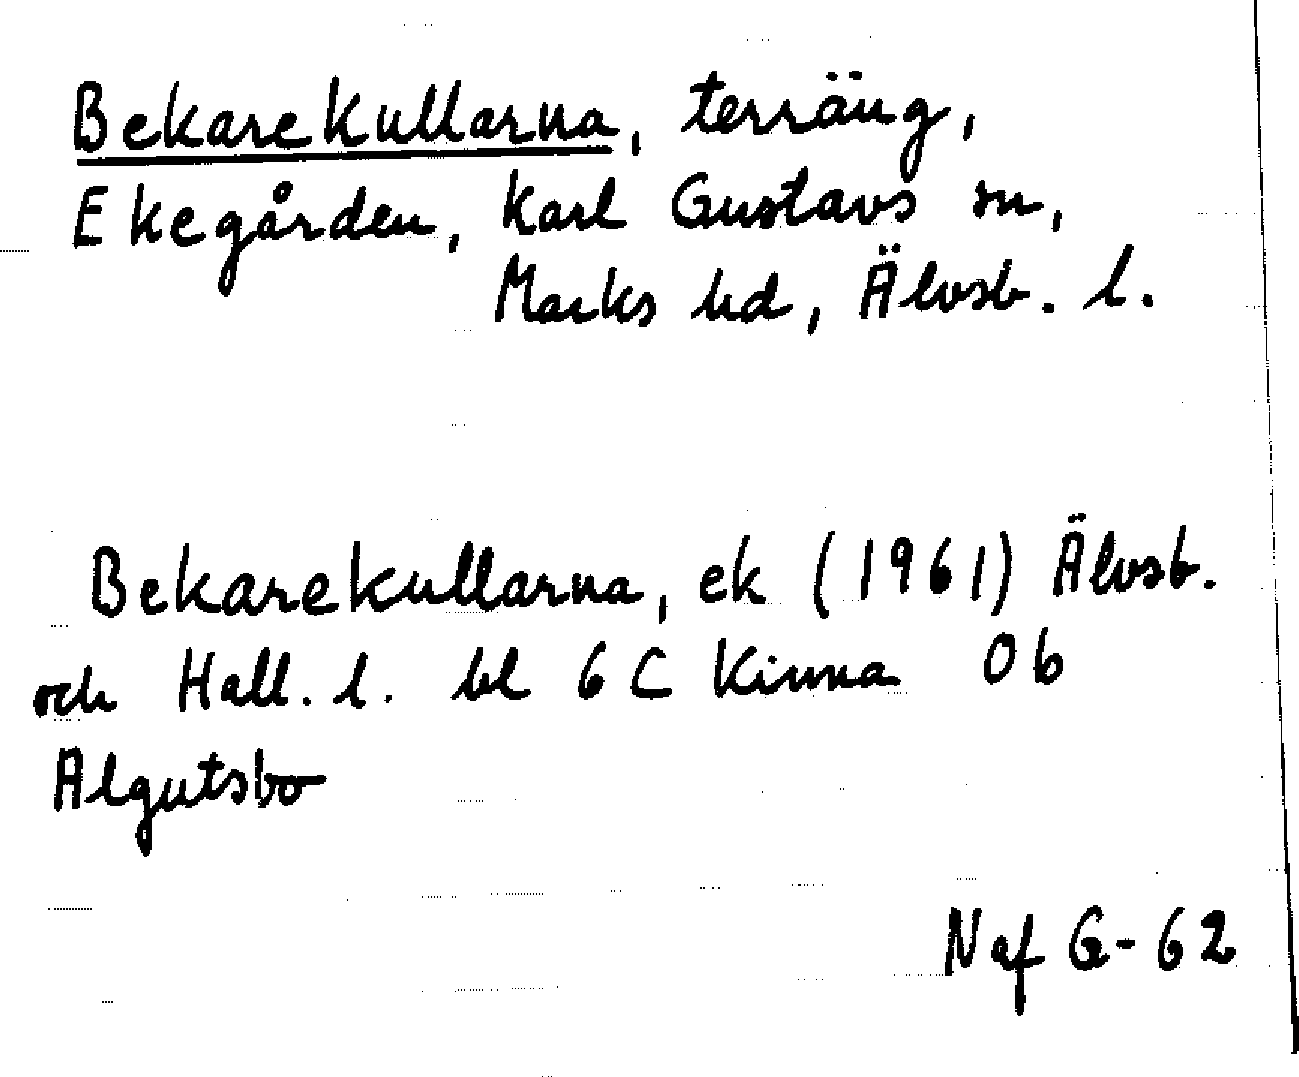 Bekarekullarna, terräng,
Ekegården, Karl Gustavs sn,
Marks hd, Älvsb. l.
Bekarekullarna, ek (1961) Älvsb.
och Hall. l. bl 6 C Kinna 0 b
Algutsbo
Naf G-62